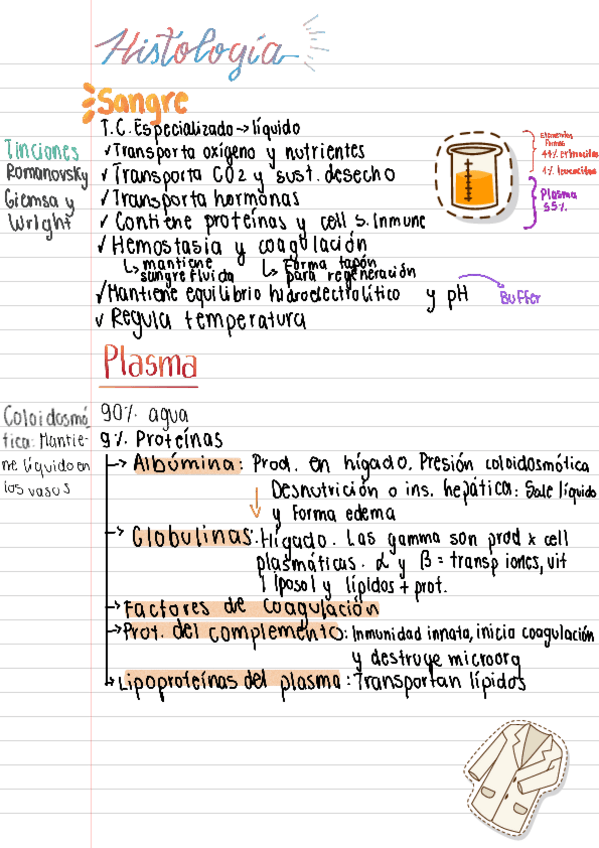 Histología
Sangre
T.C. Especializado → líquido
Tinciones
Romanovsky
Giemsa y
Wright
✓ Transporta oxígeno y nutrientes
✓ Transporta CO2 y sust. desecho
✓ Transporta hormonas
✓ Contiene proteínas y cell s. Inmune
✓ Hemostasia y coagulación
↳ mantiene
sangre fluida
↳ Forma tapón
para regeneración
✓ Mantiene equilibrio hidroelectrolítico y pH
Buffer
✓ Regula temperatura
Elementos
Formes
44% eritrocitos
1% leucocitos
Plasma
55%
Plasma
Coloidosmó
tica: Mantie-
ne líquido en
los vasos
90% agua
9% Proteínas
→ Albúmina: Prod. en hígado. Presión coloidosmótica
↓ Desnutrición o ins. hepática: Sale líquido
y Forma edema
→ Globulinas: Hígado. Las gamma son prod x cell
plasmáticas. α y β = transp iones, vit
liposol y lípidos + prot.
→ Factores de coagulación
→ Prot. del complemento: Inmunidad innata, inicia coagulación
y destruye microorg
→ Lipoproteínas del plasma: Transportan lípidos